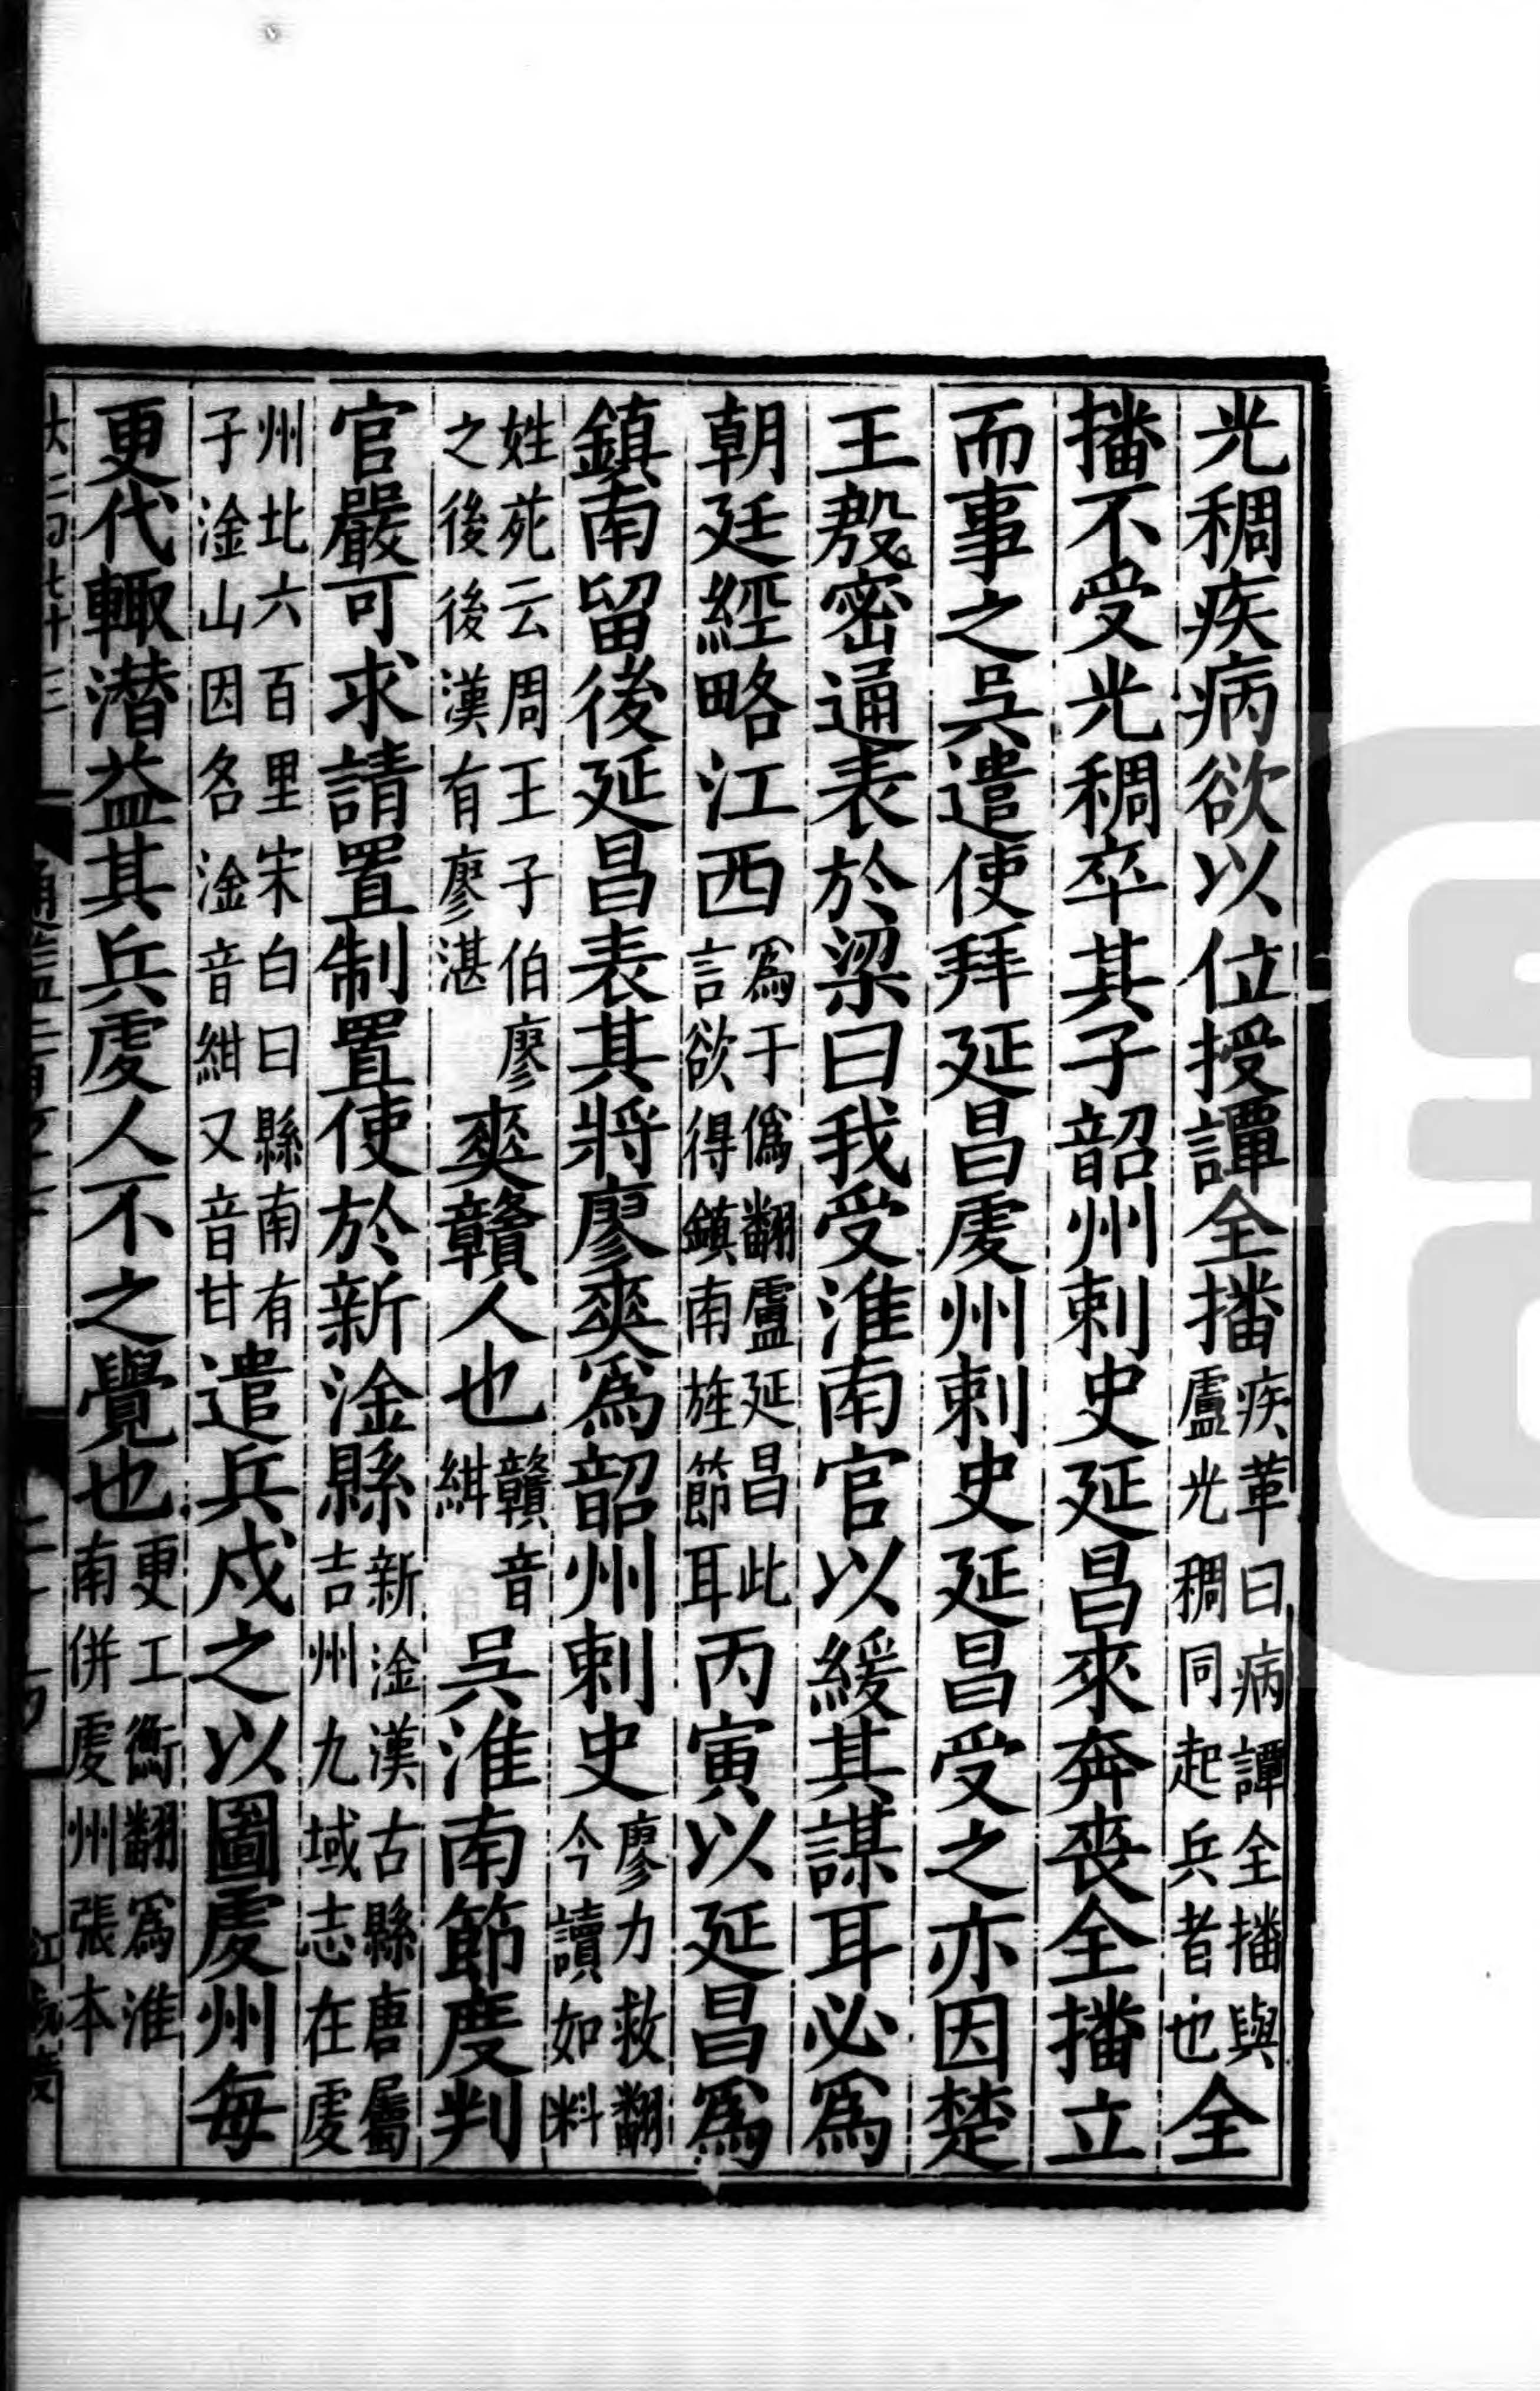 光稠疾病欲以位授譚全播疾革曰病譚全播與盧光稠同起兵者也全
播不受光稠卒其子韶州刺史延昌來奔喪全播立
而事之吳遣使拜延昌虔州刺史延昌受之亦因楚
王殷密通表於梁曰我受淮南官以緩其謀耳必爲
朝廷經略江西爲于僞翻盧延昌此言欲得鎮南旌節耳丙寅以延昌爲
鎮南留後延昌表其將廖爽爲韶州刺史廖力救翻今讀如料
姓苑云周王子伯廖之後後漢有廖湛爽贛人也贛音紺吳淮南節度判
官嚴可求請置制置使於新淦縣新淦漢古縣唐屬吉州九域志在虔
州北六百里宋白曰縣南有子淦山因名淦音紺又音甘遣兵戍之以圖虔州每
更代輒潛益其兵虔人不之覺也更工衡翻爲淮南併虔州張本